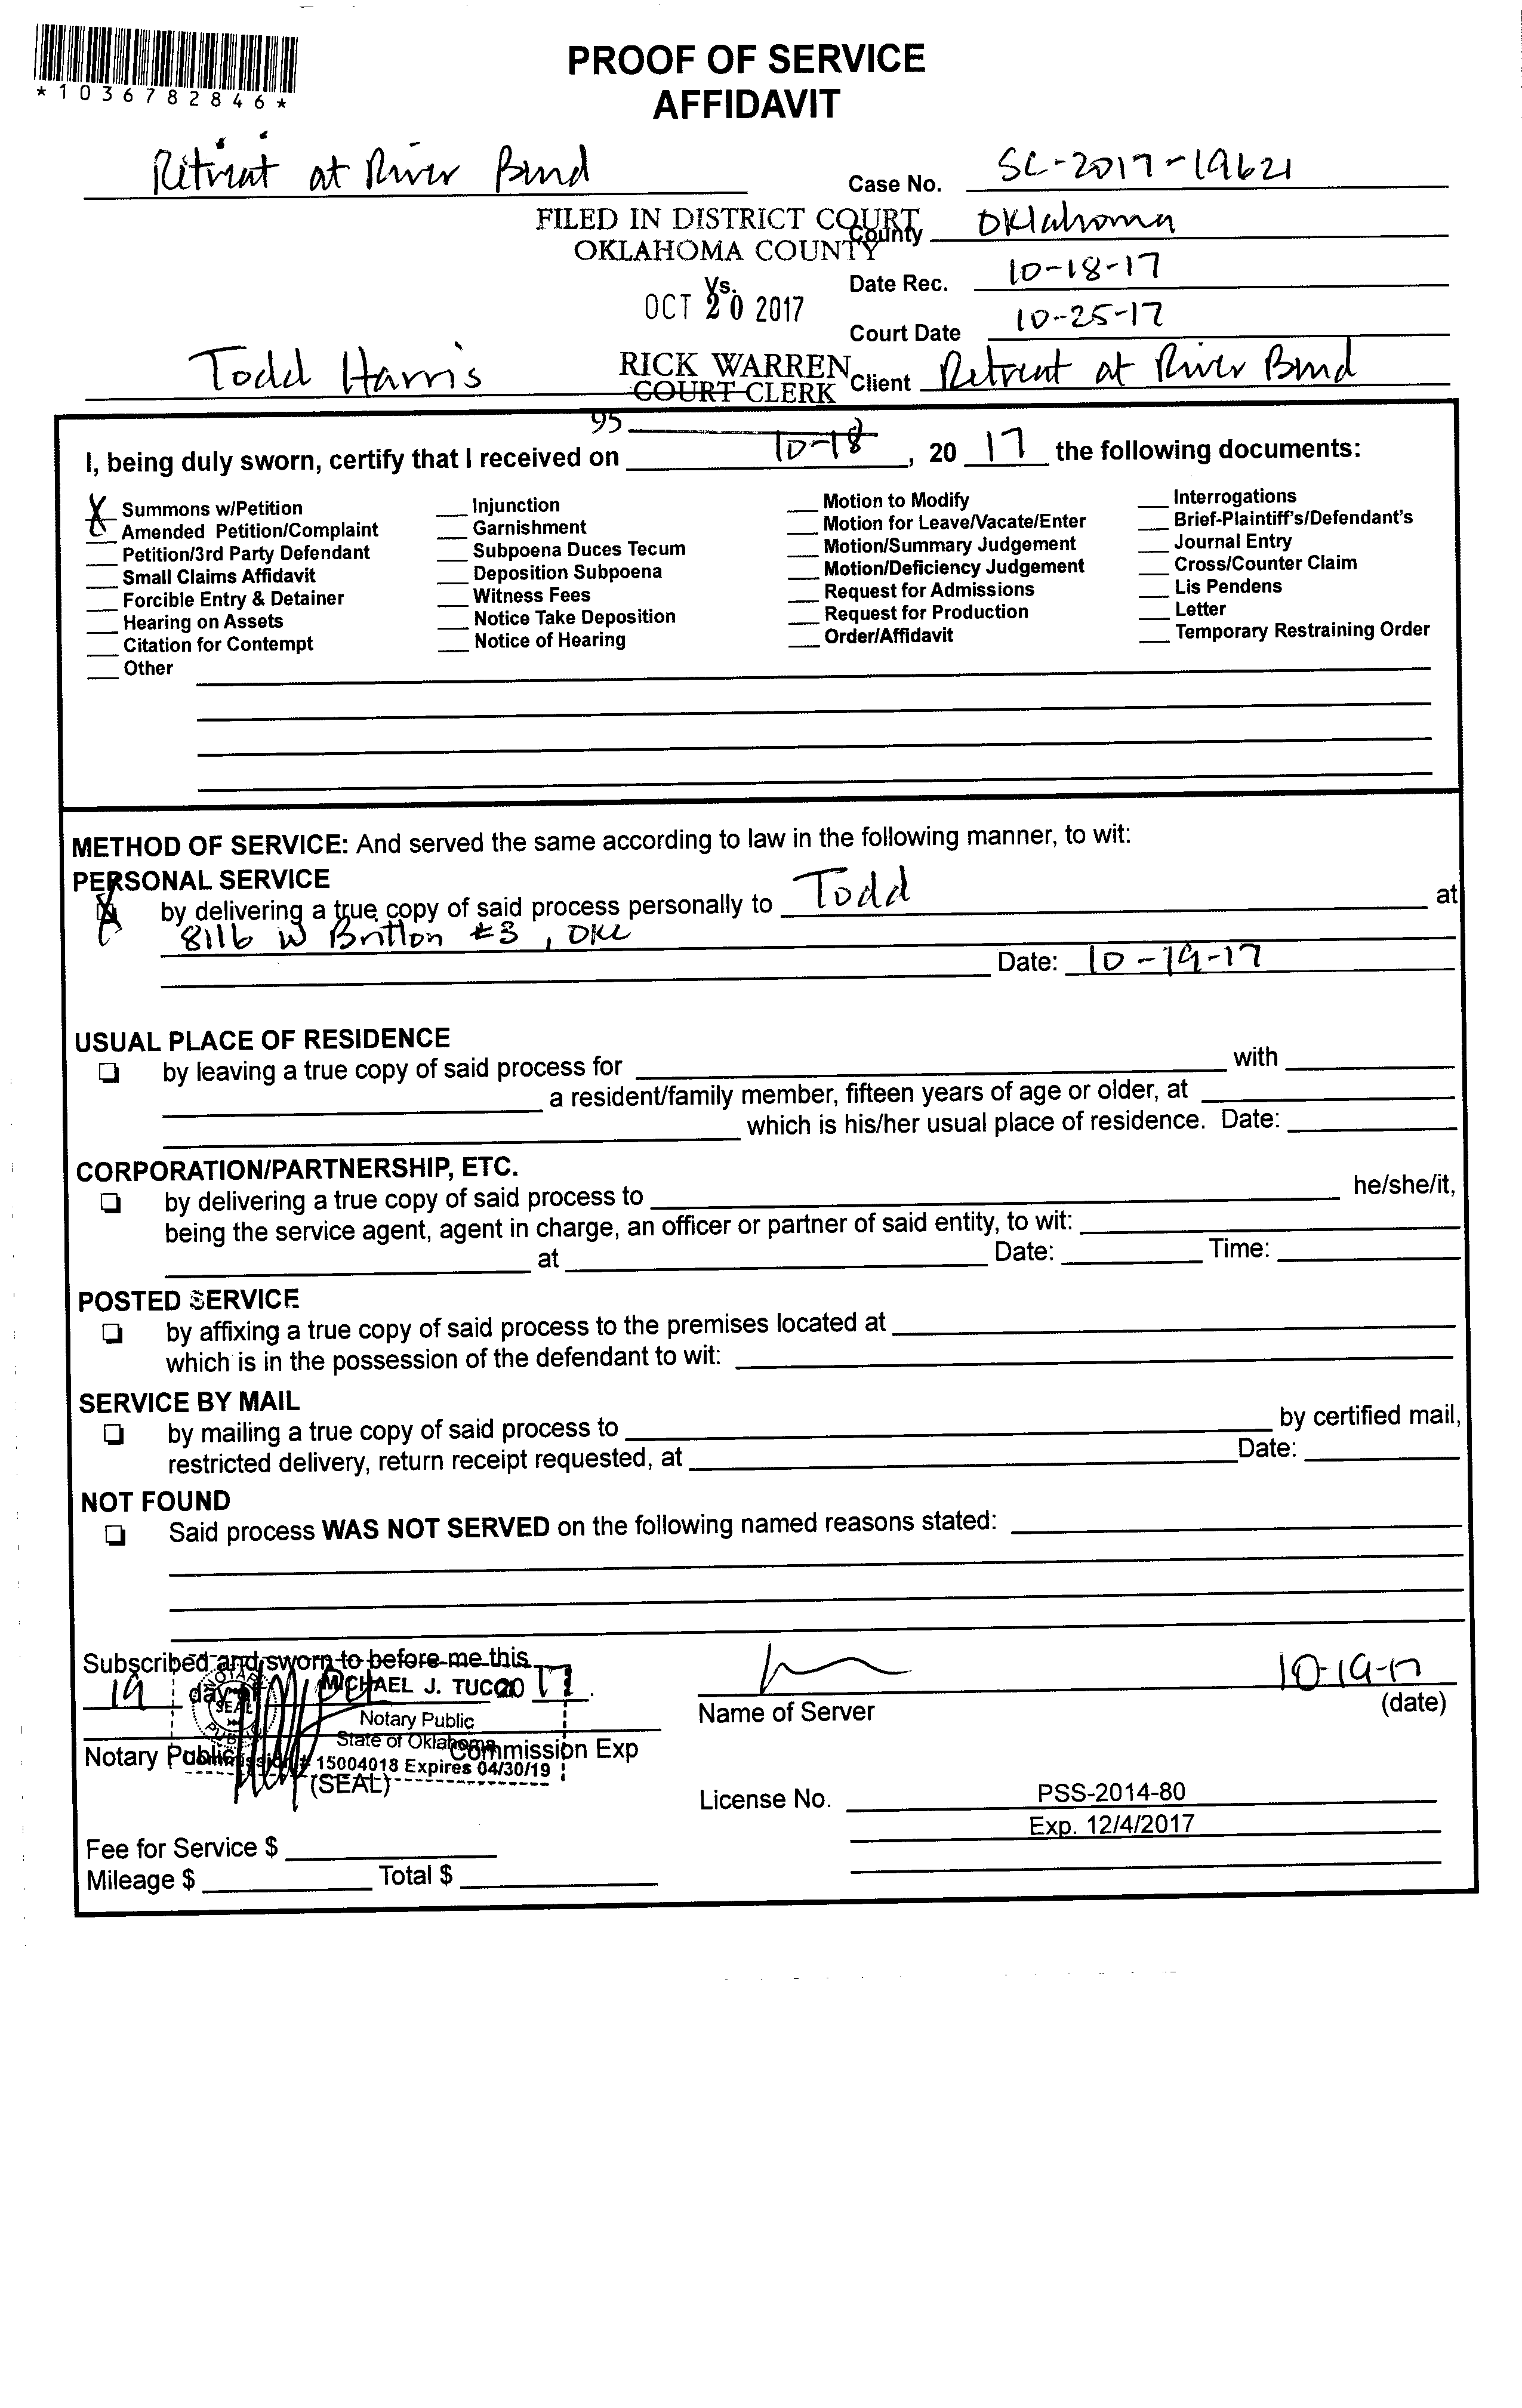 *1036782846*
PROOF OF SERVICE
AFFIDAVIT
Retreat at River Bend
Case No. SC-2017-19621
FILED IN DISTRICT COURT
OKLAHOMA COUNTY
County Oklahoma
Vs.
Date Rec. 10-18-17
OCT 20 2017
Court Date 10-25-17
Todd Harris
RICK WARREN
COURT CLERK
Client Retreat at River Bend
95
I, being duly sworn, certify that I received on 10-18, 20 17 the following documents:
X Summons w/Petition
Amended Petition/Complaint
Petition/3rd Party Defendant
Small Claims Affidavit
Forcible Entry & Detainer
Hearing on Assets
Citation for Contempt
Other
Injunction
Garnishment
Subpoena Duces Tecum
Deposition Subpoena
Witness Fees
Notice Take Deposition
Notice of Hearing
Motion to Modify
Motion for Leave/Vacate/Enter
Motion/Summary Judgement
Motion/Deficiency Judgement
Request for Admissions
Request for Production
Order/Affidavit
Interrogations
Brief-Plaintiff's/Defendant's
Journal Entry
Cross/Counter Claim
Lis Pendens
Letter
Temporary Restraining Order
METHOD OF SERVICE: And served the same according to law in the following manner, to wit:
PERSONAL SERVICE
X by delivering a true copy of said process personally to Todd at
8116 W Britton #3, OKC
Date: 10-19-17
USUAL PLACE OF RESIDENCE
by leaving a true copy of said process for with
a resident/family member, fifteen years of age or older, at
which is his/her usual place of residence. Date:
CORPORATION/PARTNERSHIP, ETC.
by delivering a true copy of said process to he/she/it,
being the service agent, agent in charge, an officer or partner of said entity, to wit:
at Date: Time:
POSTED SERVICE
by affixing a true copy of said process to the premises located at
which is in the possession of the defendant to wit:
SERVICE BY MAIL
by mailing a true copy of said process to by certified mail,
restricted delivery, return receipt requested, at Date:
NOT FOUND
Said process WAS NOT SERVED on the following named reasons stated:
Subscribed and sworn to before me this
19 day of Oct 20 17.
NOTARY
SEAL
PUBLIC
MICHAEL J. TUCCI
Notary Public
State of Oklahoma
Commission # 15004018 Expires 04/30/19
Notary Public Commission Exp
(SEAL)
10-19-17
Name of Server (date)
License No. PSS-2014-80
Exp. 12/4/2017
Fee for Service $
Mileage $ Total $